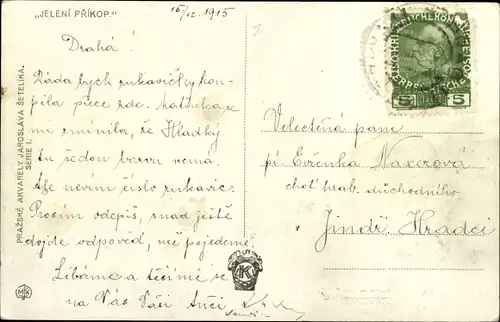 "JELENÍ PŘÍKOP."
15/12. 1915
Drahá!
Ráda bych rukavičky kou-
pila přece zde. Maminka se
mi zmínila, že Hladký
tu šedou barvu nemá.
Ale nevím číslo rukavic.
Prosím odepiš, snad ještě
dojde odpověď, než pojedeme.
Líbáme a těšíme se
na Vás Vaši
PRAŽSKÉ AKVARELY JAROSLAVA ŠETELÍKA.
SERIE I.
MK
K
5 5
Velectěná paní
pí Evženka Naxerová
choť hrab. důchodního
Jindř. Hradci